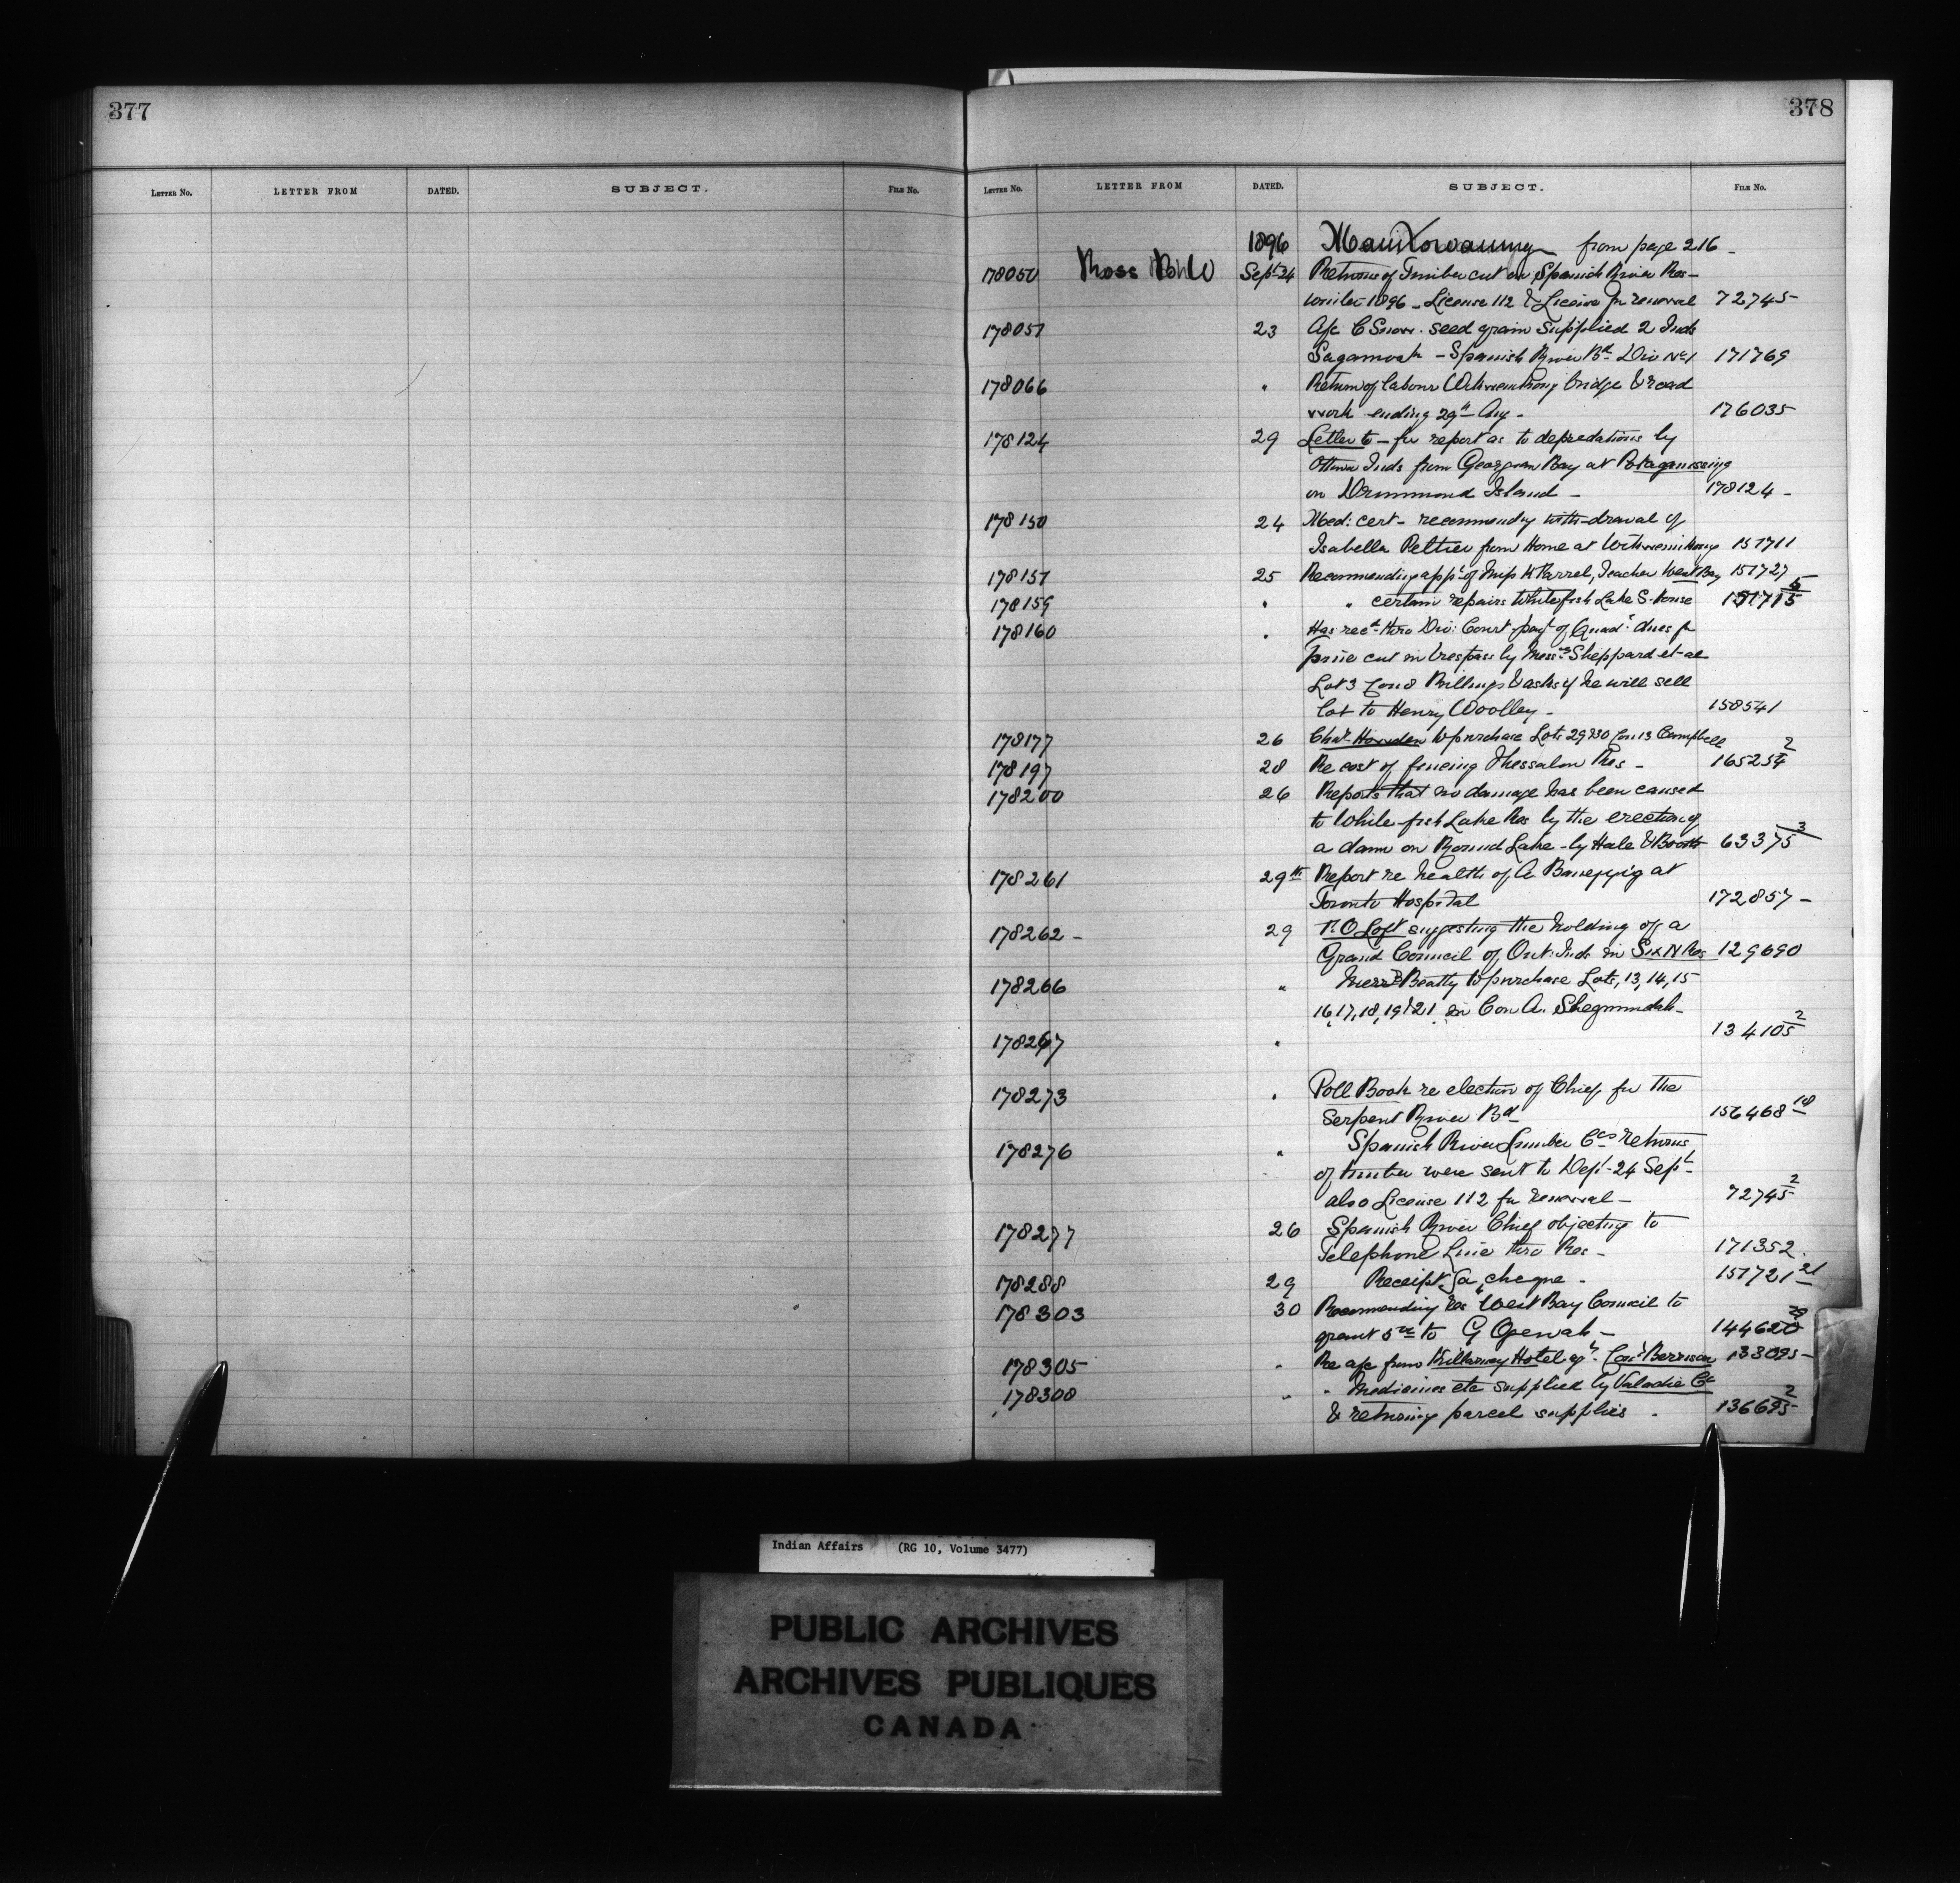 377
378
LETTER No. LETTER FROM DATED. SUBJECT. FILE No.
LETTER No. LETTER FROM DATED. SUBJECT. FILE No.
1896 Manitowaning from page 216
178050 Ross Sept 24 Returns of Timber cut on Spanish River Res-
1896 - License 112 & License for renewal 72745
178051 23 A/c C Snow. seed grain supplied 2 Inds
Sagamook - Spanish River Bd Div No 1 171769
178066 " Return of labour Wikwemikong bridge & road
work ending 29th Aug - 176035
178124 29 Letter to - for report as to depredations by
Inds from Georgian Bay at Potaganissing
on Drummond Island - 178124 -
178150 24 Med: cert - recommending with-drawal of
Isabella Peltier from Home at Wikwemikong 151711
178151 25 Recommending appt of Miss Teacher West Bay 151727
178159 " " certain repairs Whitefish Lake S. House 151715
178160 " Has recd thro Div: Court payt of dues for
pine cut in trespass by Messrs Sheppard et al
Lot 3 Con 8 Billings & asks if he will sell
lot to Henry Woolley - 158541
178177 26 Chas to purchase Lots 29 & 30 Con 13 Campbell
178197 28 Re cost of fencing Thessalon Res - 165254 2
178200 26 Reports that no damage has been caused
to White-fish Lake Res by the erection of
a dam on Round Lake - by Hale & Booth 63375 3
178261 29th Report re health of A at
Toronto Hospital 172857 -
178262 - 29 F. O Loft suggesting the holding of a
Grand Council of Ont: Inds on Six N Res 129690
178266 " Messrs Beatty to purchase Lots, 13, 14, 15
16, 17, 18, 19 & 21 in Con A. Sheguiandah -
134105 2
178267 "
178273 " Poll Book re election of Chief for the
Serpent River Bd 156468 18
178276 " Spanish River Lumber Co's returns
of timber were sent to Dept - 24 Sept -
also License 112 for renewal - 72745 2
178277 26 Spanish River Chief objecting to
Telephone Line thro Res - 171352.
178288 29 Receipt for cheque - 151721 21
178303 30 Recommending Res West Bay Council to
grant 5.00 to G - 144620
178305 " Re a/c from Killarney Hotel 
178308 " " Medicines etc supplied by Co
& returning parcel supplies . 136695 2
Indian Affairs (RG 10, Volume 3477)
PUBLIC ARCHIVES
ARCHIVES PUBLIQUES
CANADA